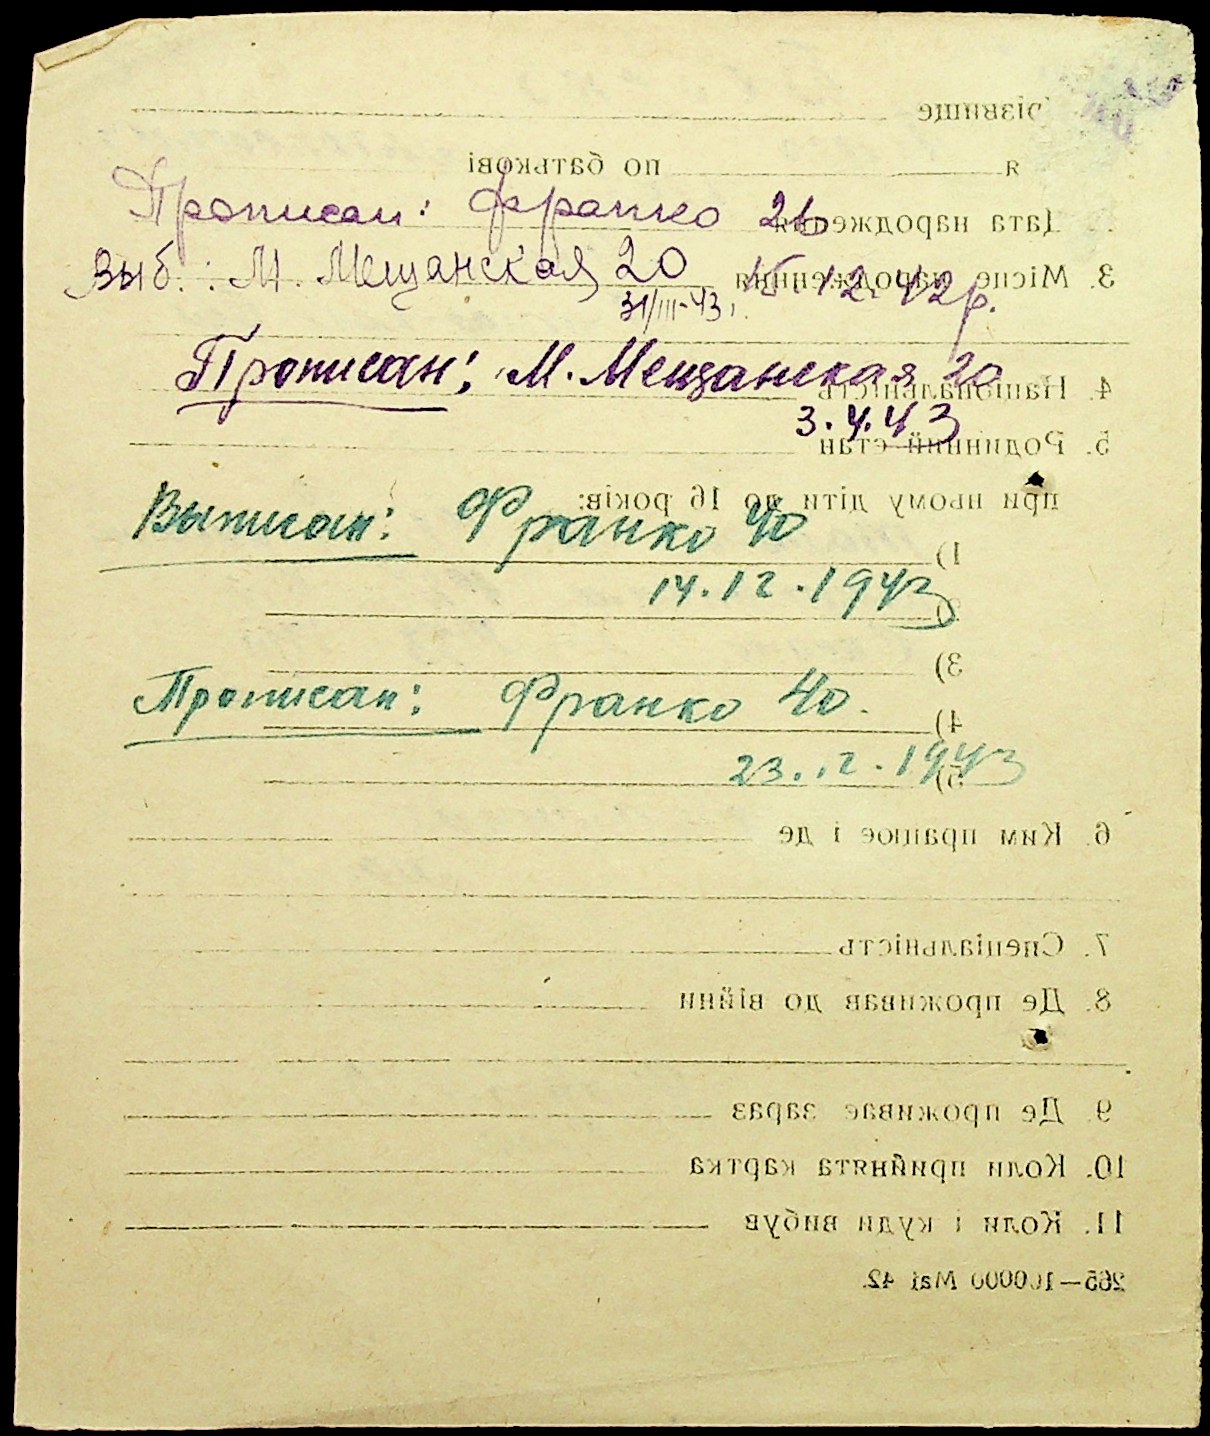 різвище
я по батькові
Прописан: Франко 26
Дата народження
Выб.: М. Мещанская 20
3. Місце народження
15.12.42р.
31/III-43.
Прописан: М. Мещанская 20
4. Національність
3.4.43
5. Родинний стан
при ньому діти до 16 років:
Выписан: Франко 40
1)
14.12.1943
2)
3)
Прописан: Франко 40.
4)
23.12.1943
5)
6. Ким працює і де
7. Спеціальність
8. Де проживав до війни
9. Де проживає зараз
10. Коли прийнята картка
11. Коли і куди вибув
265—100000 Mai 42.